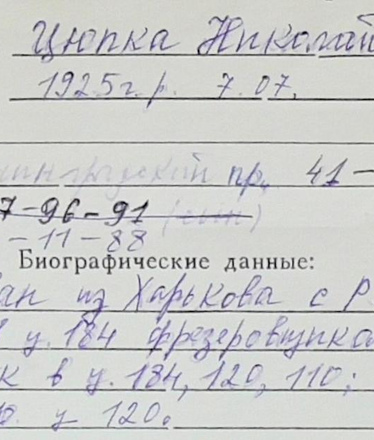 Цюпка Николай
1925 г. р. 7.07.
пр. 41 –
7-96-91 (сын)
-11-88
Биографические данные:
ан из Харькова с Р
ц. 184 фрезеровщика
к в ц. 184, 120, 110;
ц 120.